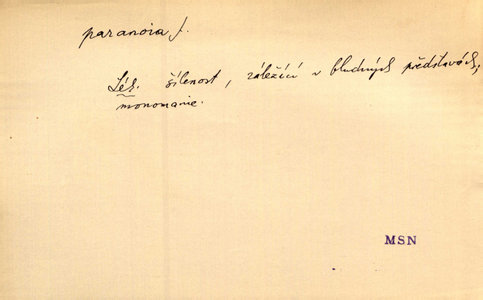 paranoia f.
Lék. šílenost, záležící v bludných představách,
monomanie.
MSN